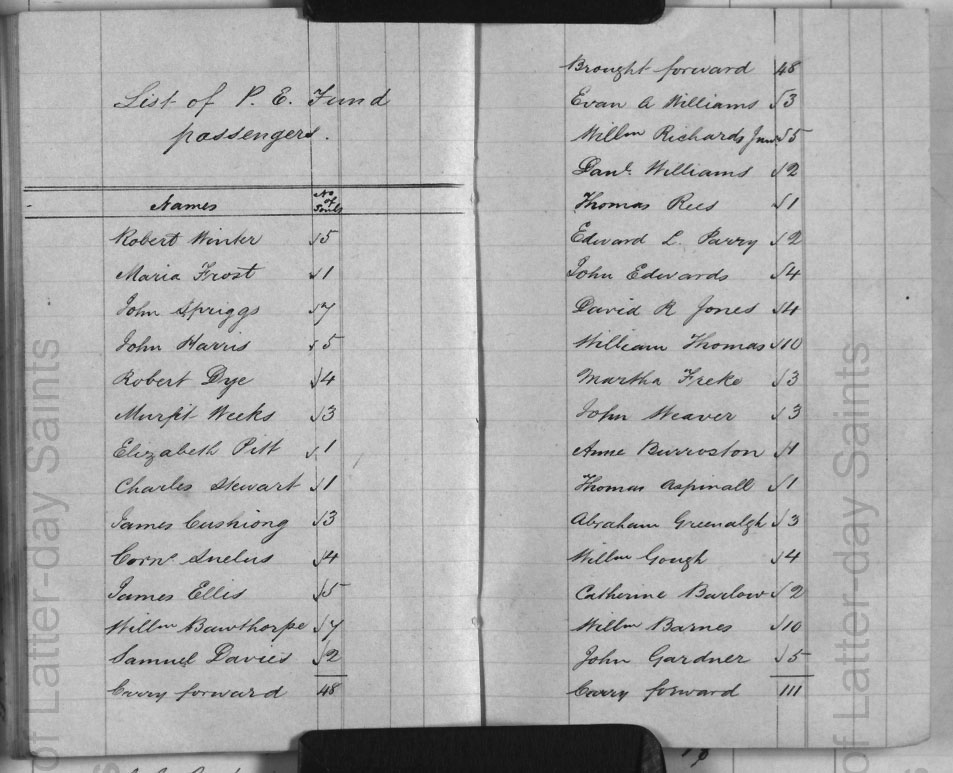 List of P. E. Fund
passengers.
Names No of Souls
Robert Winter 5
Maria Frost 1
John Spriggs 7
John Harris 5
Robert Dye 4
Murfit Weeks 3
Elizabeth Pitt 1
Charles Stewart 1
James Cushiong 3
Corns. Snelus 4
James Ellis 5
Willm Bawthorpe 7
Samuel Davies 2
Carry forward 48
Brought forward 48
Evan A Williams 3
Willm Richards Junr 5
Danl. Williams 2
Thomas Rees 1
Edward L. Parry 2
John Edwards 4
David R Jones 4
William Thomas 10
Martha Freke 3
John Weaver 3
Anne Burroston 1
Thomas Aspinall 1
Abraham Greenalgh 3
Willm Gough 4
Catherine Barlow 2
Willm Barnes 10
John Gardner 5
Carry forward 111
of Latter-day Saints
of Latter-day Saints